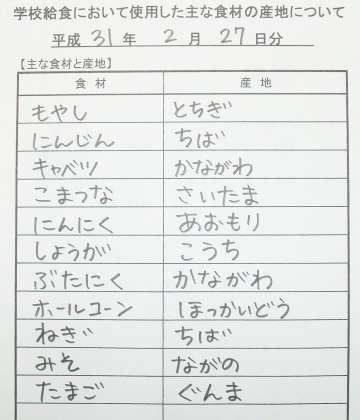 学校給食において使用した主な食材の産地について
平成 31 年 2 月 27 日分
【主な食材と産地】
食材 産地
もやし とちぎ
にんじん ちば
キャベツ かながわ
こまつな さいたま
にんにく あおもり
しょうが こうち
ぶたにく かながわ
ホールコーン ほっかいどう
ねぎ ちば
みそ ながの
たまご ぐんま